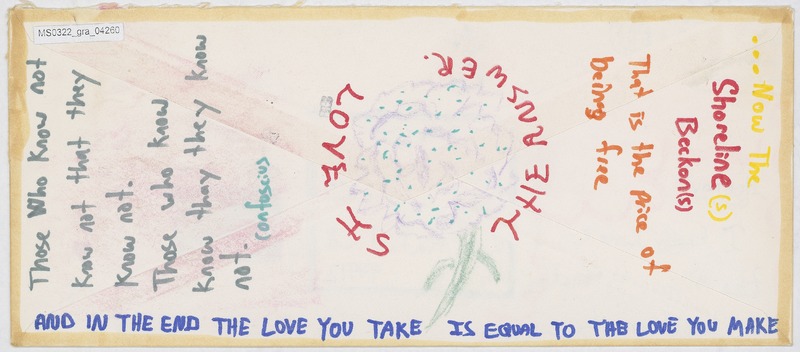 MS0322_gra_04260
Those Who Know not
Know not that they
Know not.
Those who know
know thay they know
not.
confuscius
LOVE IS THE ANSWER.
....Now The
Shoreline(s)
Beckon(s)
That is the price of
being free
AND IN THE END THE LOVE YOU TAKE IS EQUAL TO THE LOVE YOU MAKE